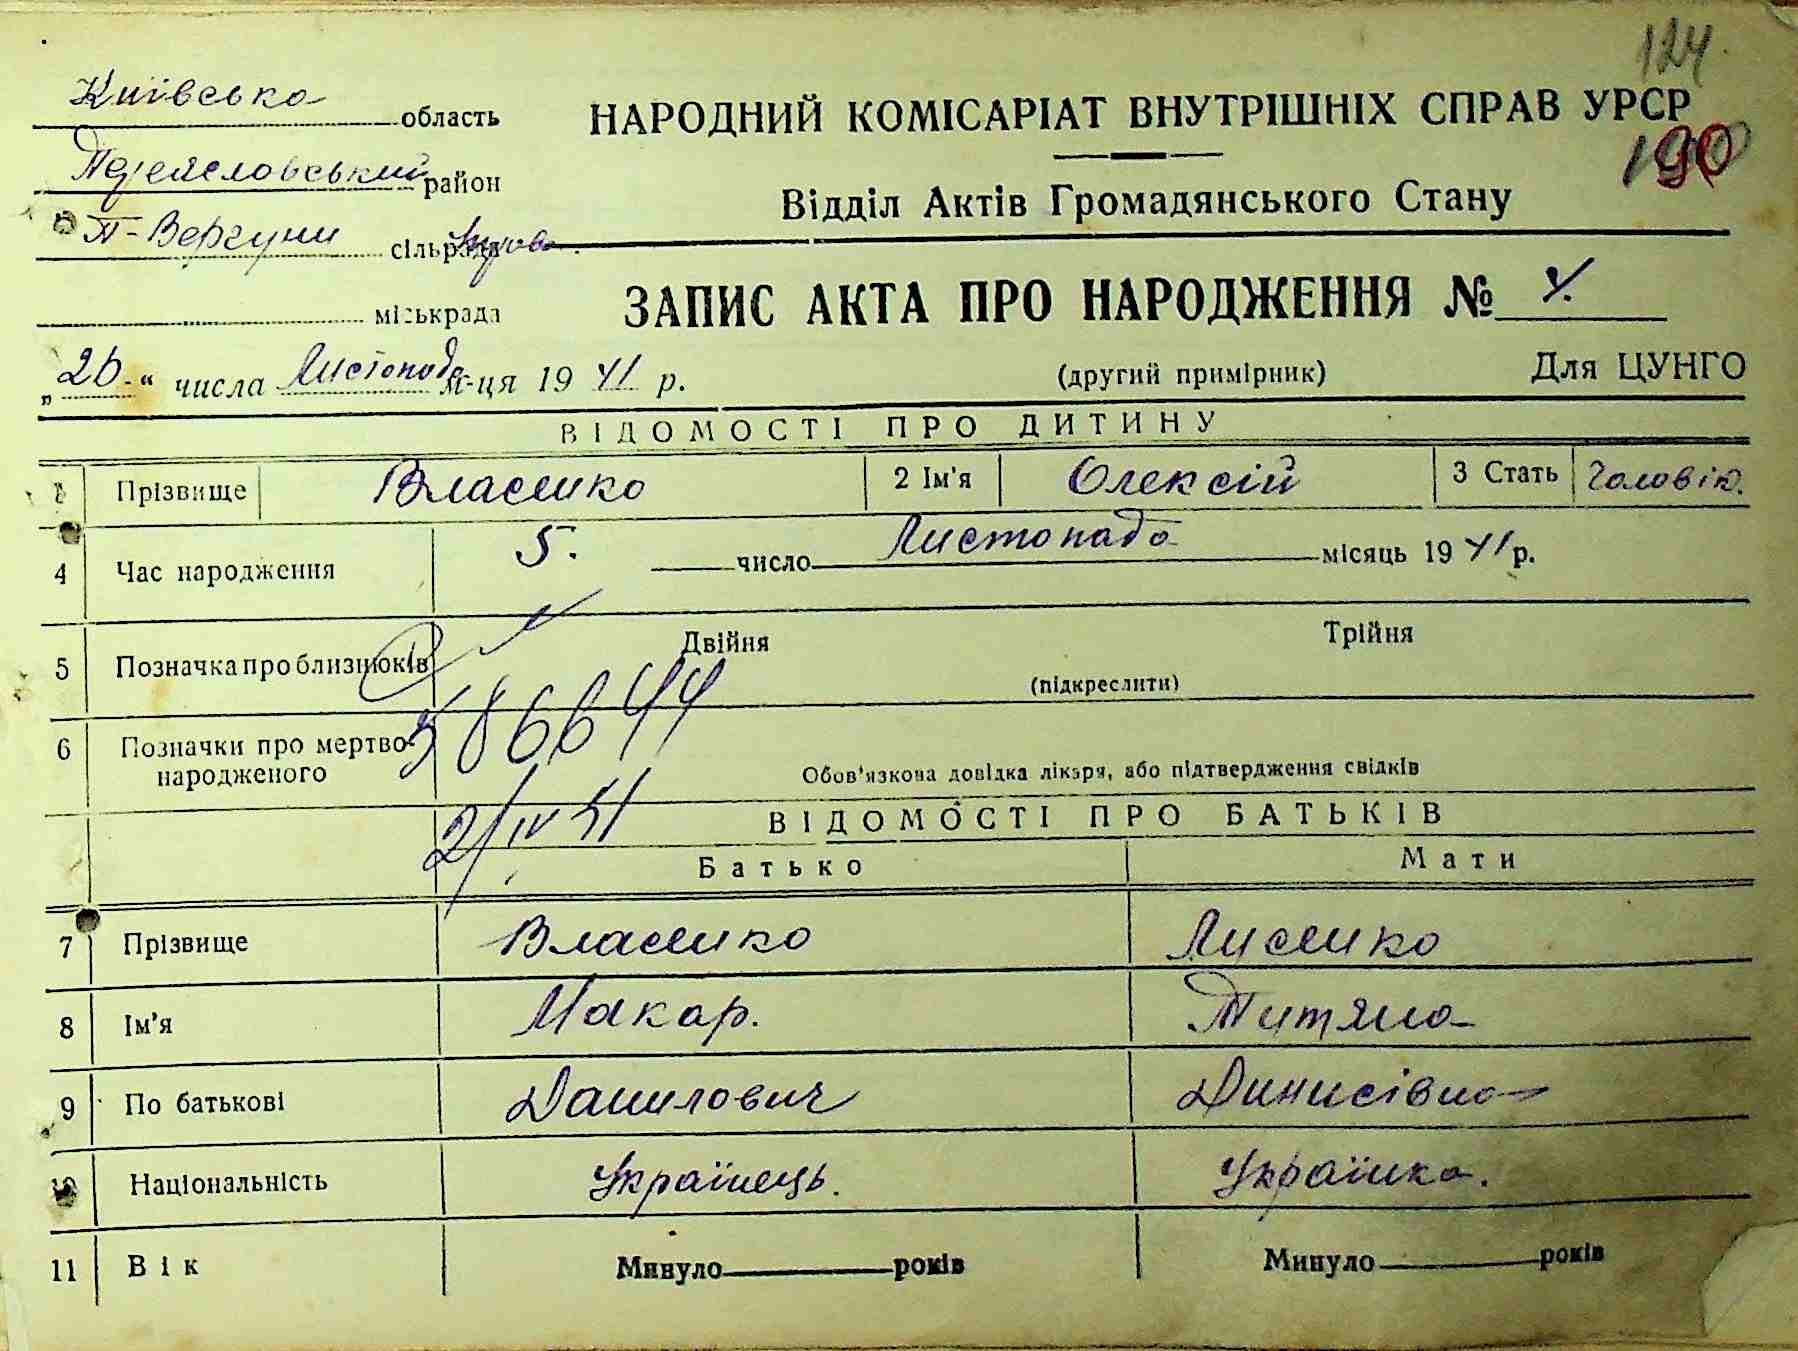 124
Київсько область
НАРОДНИЙ КОМІСАРІАТ ВНУТРІШНІХ СПРАВ УРСР
190
Переясловський район
Відділ Актів Громадянського Стану
П-Вергуни сільрада
міськрада
ЗАПИС АКТА ПРО НАРОДЖЕННЯ № 4.
„26.“ числа Листопада м-ця 1941 р.
(другий примірник)
Для ЦУНГО
ВІДОМОСТІ ПРО ДИТИНУ
1 Прізвище Власенко 2 Ім'я Олексій 3 Стать Чоловік.
4 Час народження 5. число Листопада місяць 1941 р.
5 Позначка про близнюків Двійня Трійня
(підкреслити)
586644
6 Позначки про мертво-
народженого
Обов'язкова довідка лікаря, або підтвердження свідків
2/IV 41
ВІДОМОСТІ ПРО БАТЬКІВ
Батько Мати
7 Прізвище Власенко Лисенко
8 Ім'я Макар. Титяна
9 По батькові Данилович Динисівна
10 Національність Українець. Українка.
11 Вік Минуло років Минуло років